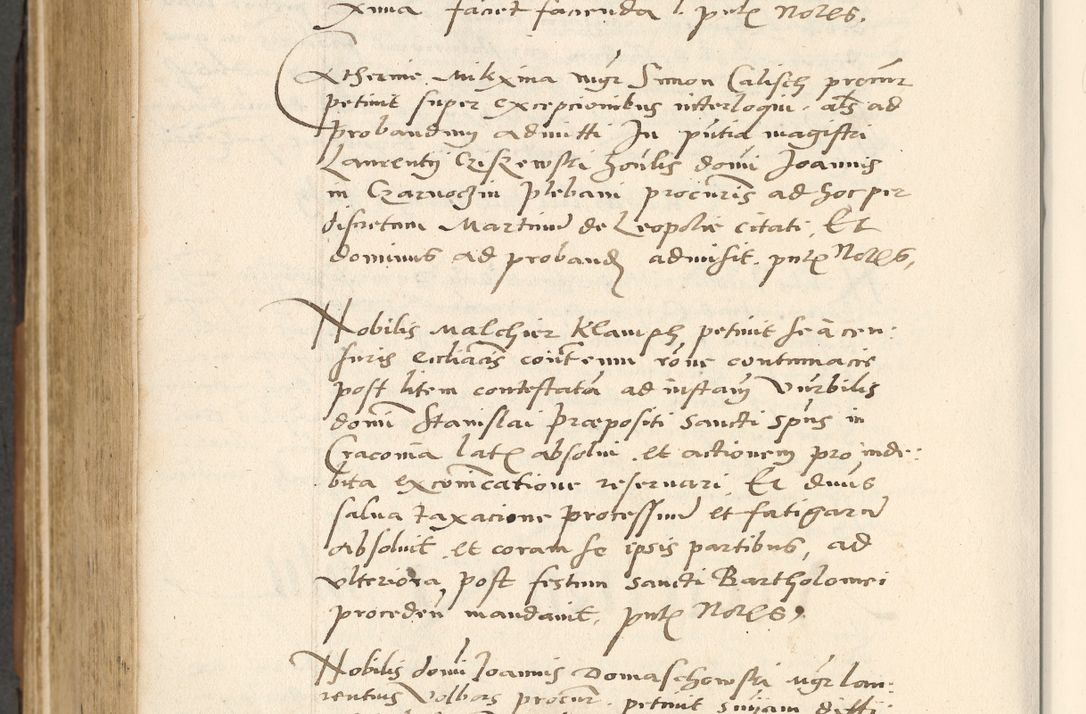 xima faciet facienda l. pntx Notes.
Atherine Mikxina mgr Simon Calisch procur
petiuit super excepcionibus interloqui. als ad
probandum admitti In pntia magistri
Laurentij Cziszewski honlis domi Joannis
in Czarnoczin plebani procuris ad hoc per
discretum Martinu de Leopolie citati. Et
dominus ad proband admisit. pntx Notes,
Nobilis Malchier Klamph, petiuit se a cen:
suris eccliacis contentum rone contumacie
post litem contestata ad instam Vnrbilis
domi Stanislai Præpositi Sancti spus in
Cracouia latx absolui. et actionem pro inde:
bita excomcatione reseruari Et dnus
salua taxacione processuu et fatigaru
absoluit. et coram se ipsis partibus, ad
vlteriora, post festum Sancti Bartholomei
proceden mandauit, pntx Notes,
Nobilis domi Joannis Domaschowski mgr Lau:
rentius Volbors procur. petiuit